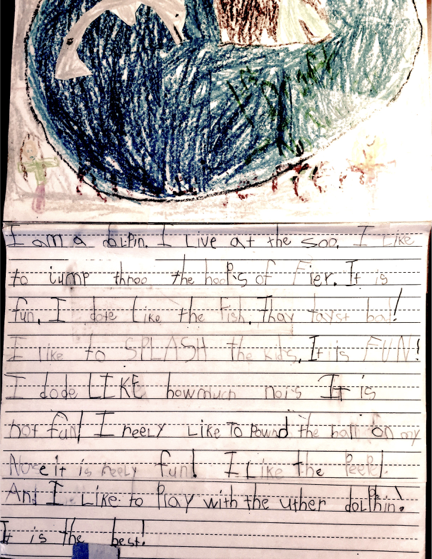 I am a dolpin. I Live at the soo. I Like
to iump throo the hooPs of Fier. It is
fun. I dote Like the Fish. Thay tayst bad!
I like to SPLASH the kids. It is FUN!
I dode LIKE howmuch nois It is
not fun! I reely LIKE To Pownd the ball on my
Nose it is reely fun! I Like the PeePl!
And I Like to Play with the uther dolphin!
It is the best!